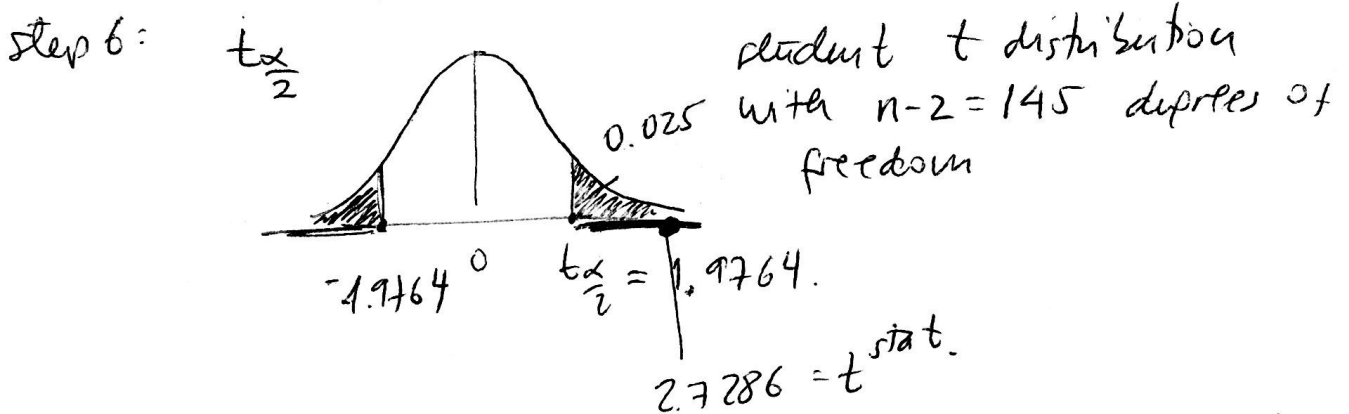 step 6: t α/2 student t distribution
0.025 with n-2=145 degrees of
freedom
-1.9764 0 t α/2 = 1.9764.
2.7286 = t stat.